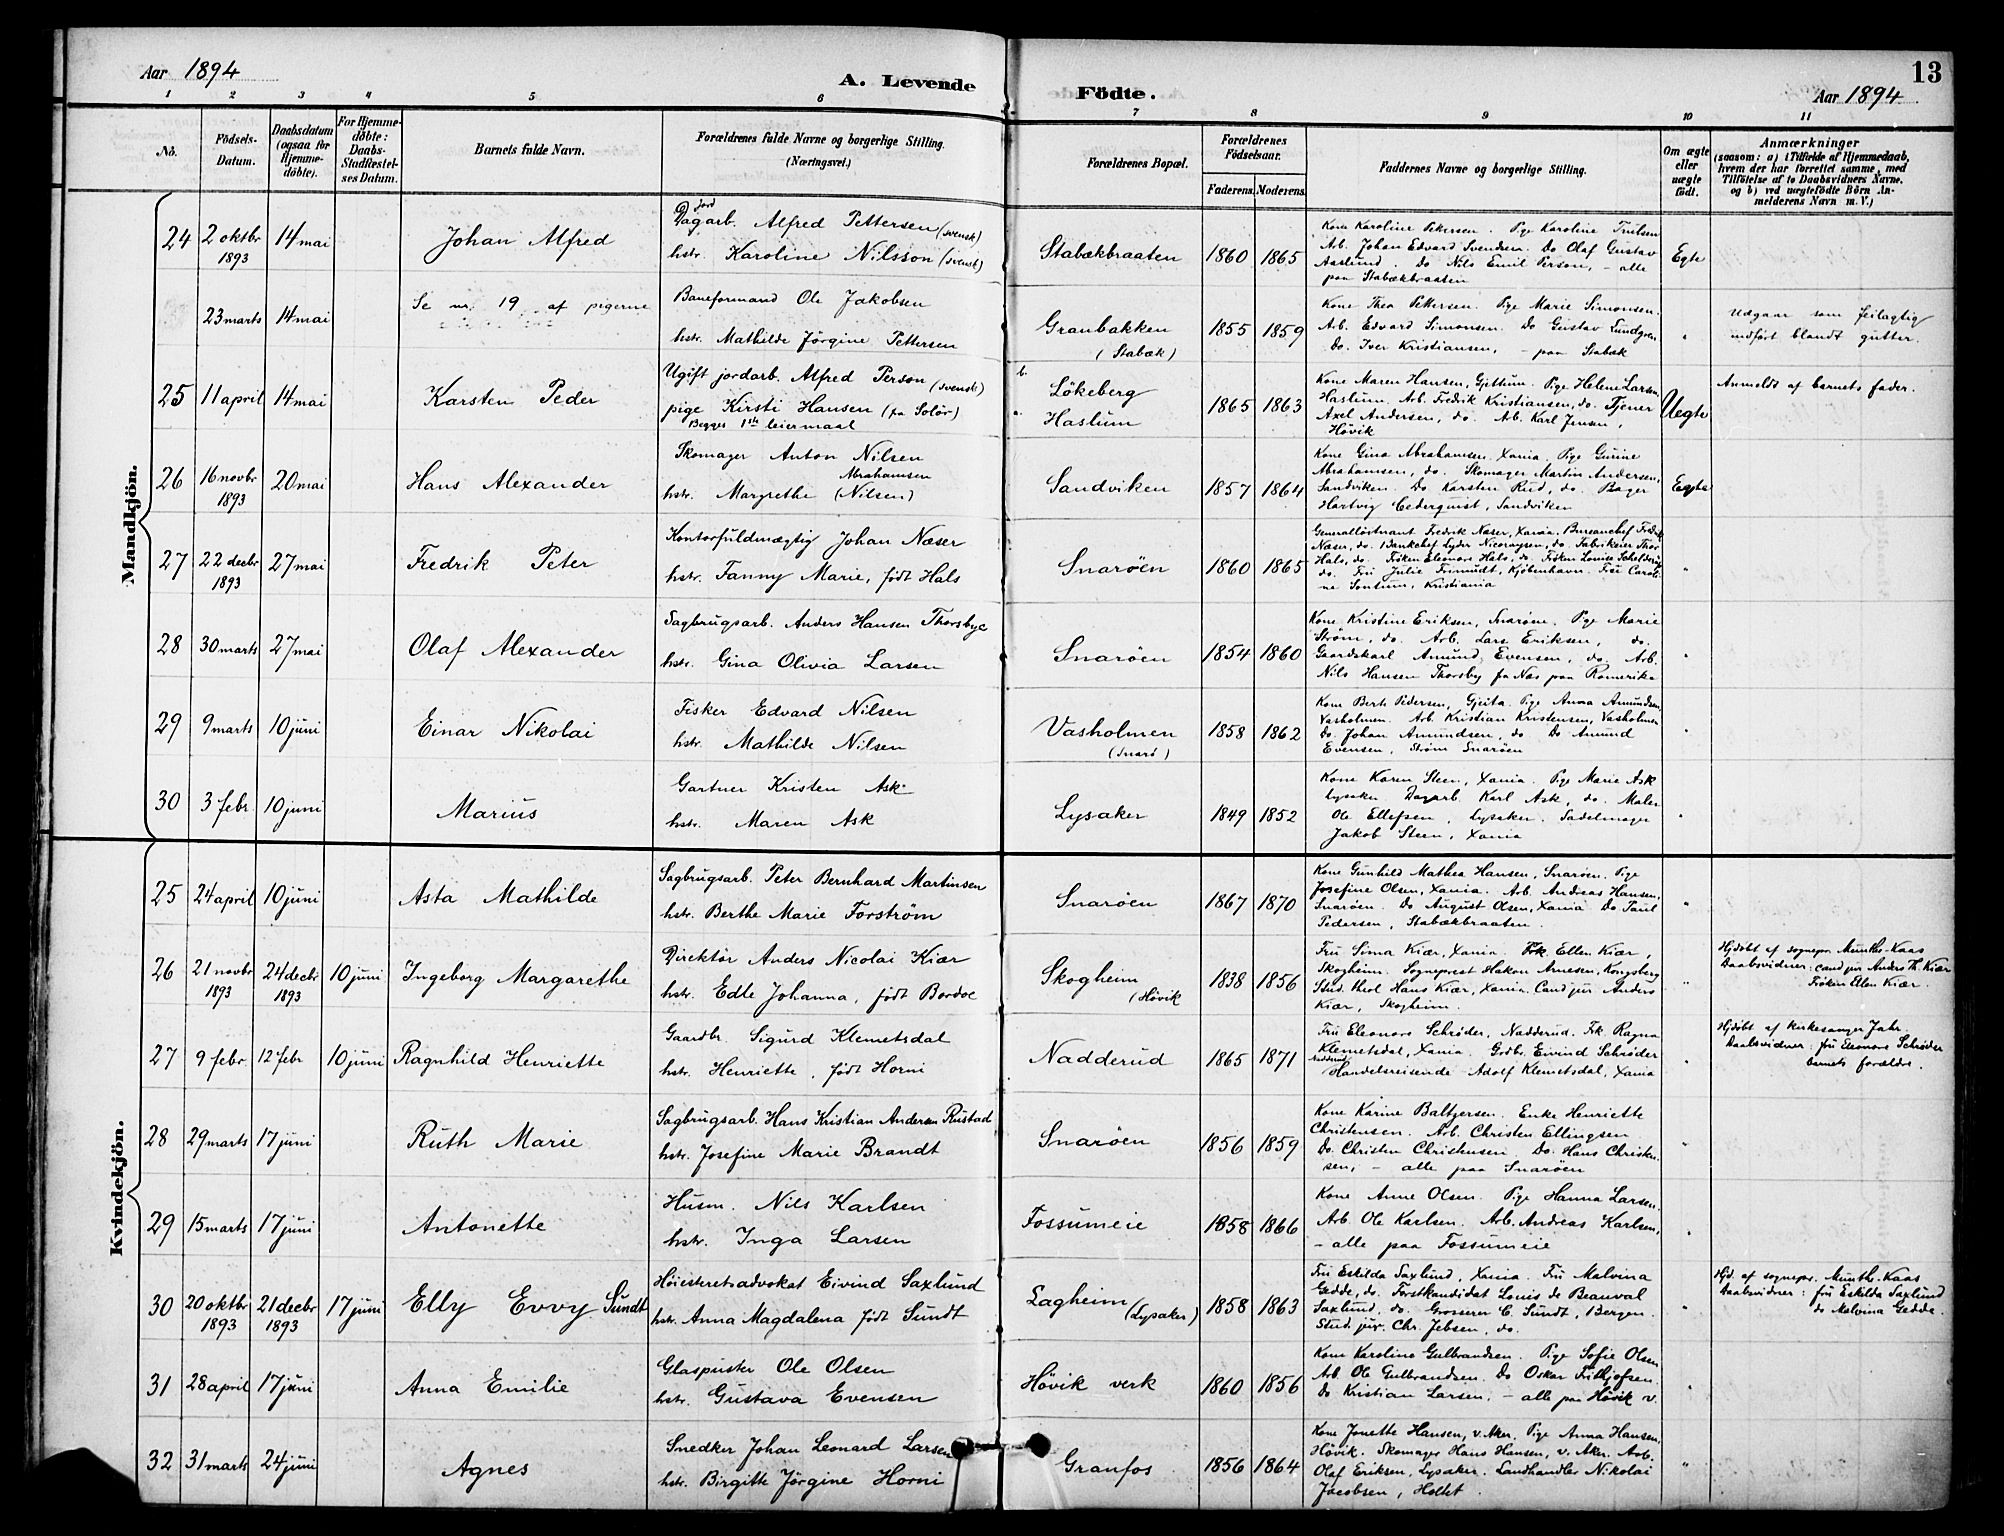 Aar 1894
A. Levende Födte.
13
Aar 1894
1 2 3 4 5 6 7 8 9 10 11
No. Födsels-Datum. Daabsdatum (ogsaa for Hjemmedöbte). For Hjemmedöbte: Daabs-Stadfæstelses Datum. Barnets fulde Navn. Forældrenes fulde Navne og borgerlige Stilling. (Næringsvei.) Forældrenes Bopæl. Forældrenes Födselsaar. Faderens. Moderens. Faddernes Navne og borgerlige Stilling. Om ægte eller uægte födt. Anmærkninger (saasom: a) i Tilfælde af Hjemmedaab, hvem der har forrettet samme, med Tilföielse af to Daabsvidners Navne, og b) ved uægtefödte Börn Anmelderens Navn m. V.)
Mandkjön.
24 2 oktbr 1893 14 mai Johan Alfred
Dagarb. Alfred Pettersen (svensk)
hstr. Karoline Nilsson (svensk)
Stabækbraaten 1860 1865
Kone Karoline Petersen. Pige Karoline Trulsen
Arb. Johan Edvard Svendsen. Do Olaf Gustav
Aaslund. Do Nils Emil Person, – alle
paa Stabækbraaten
Egte
23 marts 14 mai Se nr. 19 af pigerne
Baneformand Ole Jakobsen
hstr. Mathilde Jörgine Pettersen
Granbakken
(Stabæk)
1855 1859
Kone Thea Pettersen. Pige Marie Simonsen.
Arb. Edvard Simonsen. Do Gustav Lundgren
Do. Iver Kristiansen, – paa Stabæk
"
Udgaar som feilagtig
indført blandt gutter.
25 11 april 14 mai Karsten Peder
Ugift jordarb. Alfred Person (svensk)
pige Kirsti Hansen (fra Solör)
Begges 1ste leiermaal
b. Lökeberg
a. Haslum
1865 1863
Kone Maren Hansen, Gjettum. Pige Helene Larsen,
Haslum. Arb. Fredrik Kristiansen, do. Tjener
Axel Andersen, do. Arb. Karl Jensen,
Hövik
Uegte
Anmeldt af barnets fader.
26 16 novbr 1893 20 mai Hans Alexander
Skomager Anton Nilsen
Abrahamsen
hstr. Margrethe (Nilsen)
Sandviken 1857 1864
Kone Gina Abrahamsen. Xania. Pige Gurine
Abrahamsen, do. Skomager Martin Andersen,
Sandviken. Do Karsten Rud, do. Bager
Hartvig Cederquist, Sandviken
Egte
27 22 decbr 1893 27 mai Fredrik Peter
Kontorfuldmægtig Johan Næser
hstr. Fanny Marie, født Hals
Snaröen 1860 1865
Generalløitnant Fredrik Næser, Xania, Bureauchef Fredrik
Næser, do. Bankchef Lyder Nicolaysen, do. Fabrikeier Thor
Hals, do. Frøken Eleonore Hals, do. Frøken Louise Schelderup
do. Fru Julie Frimudt, Kjøbenhavn. Fru Caroline
Sontum, Kristiania
"
28 30 marts 27 mai Olaf Alexander
Sagbrugsarb. Anders Hansen Thorsbye
hstr. Gina Olivia Larsen
Snaröen 1854 1860
Kone Kristine Eriksen, Snaröen. Pige Marie
Ström, do. Arb. Lars Eriksen, do.
Gaardskarl Amund Evensen, do. Arb.
Nils Hansen Thorsby fra Næs paa Romerike
"
29 9 marts 10 juni Einar Nikolai
Fisker Edvard Nilsen
hstr. Mathilde Nilsen
Vasholmen
(Snarö)
1858 1862
Kone Berte Pedersen, Gjeita. Pige Anna Amundsen,
Vasholmen. Arb Kristian Kristensen, Vasholmen
Do. Johan Amundsen, do Do Amund
Evensen, Ström Snaröen
"
30 3 febr 10 juni Marius
Gartner Kristen Ask
hstr. Maren Ask
Lysaker 1849 1852
Kone Karen Steen, Xania. Pige Marie Ask
Lysaker Dagarb. Karl Ask, do. Maler
Ole Ellefsen, Lysaker. Sadelmager
Jakob Steen, Xania
"
Kvindekjön.
25 24 april 10 juni Asta Mathilde
Sagbrugsarb. Peter Bernhard Martinsen
hstr. Berthe Marie Forström
Snaröen 1867 1870
Kone Gunhild Mathea Hansen, Snaröen. Pige
Josefine Olsen, Xania. Arb. Andreas Hansen,
Snaröen. Do August Olsen, Xania Do Paul
Pedersen, Stabækbraaten.
"
26 21 novbr 1893 24 decbr 1893 10 juni Ingeborg Margarethe
Direktör Anders Nicolai Kiær
hstr. Edle Johanna, født Bordoe
Skogheim
(Hövik
1838 1856
Fru Sima Kiær, Xania. Frk. Ellen Kiær,
Skogheim. Sogneprest Hakon Arnesen, Kongsberg
Stud. theol Hans Kiær, Xania. Cand jur Anders
Kiær, Skogheim.
"
Hjdøbt af sognepr. Munthe-Kaas
Daabsvidner: cand jur Anders Th. Kiær
Frøken Ellen Kiær.
27 9 febr 12 febr 10 juni Ragnhild Henriette
Gaardbr. Sigurd Klemetsdal
hstr. Henriette, født Horni
Nadderud 1865 1871
Fru Eleonore Schrøder, Nadderud. Frk. Ragna
Klemetsdal, Xania. Grdbr. Eivind Schrøder
Nadderud
Handelsreisende Adolf Klemetsdal, Xania
"
Hjdøbt af kirkesanger Jahr.
Daabsvidner: fru Eleonore Schrøder
barnets forældre.
28 29 marts 17 juni Ruth Marie
Sagbrugsarb. Hans Kristian Andersen Rustad
hstr. Josefine Marie Brandt
Snaröen 1856 1859
Kone Karine Baltzersen. Enke Henriette
Christensen. Arb. Christen Ellingsen
Do. Christen Christensen Do. Hans Christensen,
– alle paa Snaröen
"
29 15 marts 17 juni Antonette
Husm. Nils Karlsen
hstr. Inga Larsen
Fossumeie 1858 1866
Kone Anne Olsen. Pige Hanna Larsen.
Arb. Ole Karlsen. Arb. Andreas Karlsen,
– alle paa Fossumeie
"
30 20 oktbr 1893 21 decbr 1893 17 juni Elly Evvy Sundt
Høiesteretsadvokat Eivind Saxlund
hstr. Anna Magdalena født Sundt
Lagheim
(Lysaker)
1858 1863
Fru Eskilda Saxlund, Xania. Fru Malvina
Gedde, do. Forstkandidat Louis de Beauval
Saxlund, do. Grosserer C. Sundt, Bergen.
Stud. jur. Chr. Jebsen, do.
"
Hjd. af sognepr. Munthe-Kaas
Daabsvidner: fru Eskilda Saxlund
do Malvina Gedde.
31 28 april 17 juni Anna Emilie
Glaspuster Ole Olsen
hstr. Gustava Evensen
Hövik verk 1860 1856
Kone Karoline Gulbrandsen. Pige Sofie Olsen
Arb. Ole Gulbrandsen. Do Oskar Fritjofsen.
Do Kristian Larsen. – alle paa Hövik v.
"
32 31 marts 24 juni Agnes
Snedker Johan Leonard Larsen
hstr. Birgitte Jörgine Horni
Granfos 1856 1864
Kone Jonette Hansen, v. Aker. Pige Anna Hansen,
Hövik. Skomager Hans Hansen, v. Aker. Arb.
Olaf Eriksen, Lysaker. Landhandler Nikolai
Jacobsen, Holtet.
"